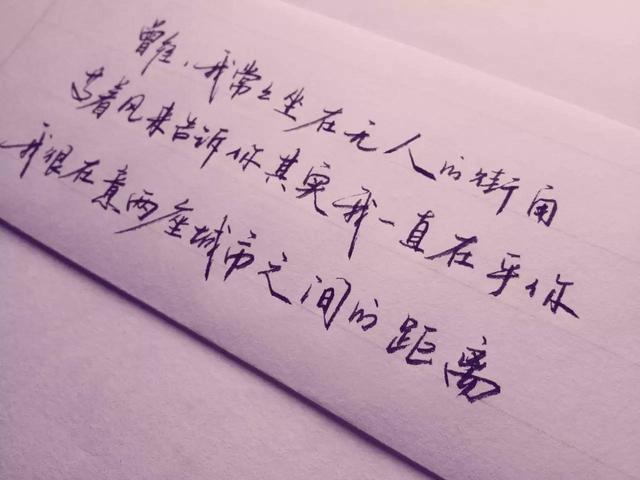 曾经，我常常坐在无人的街角
等着风来告诉你其实我一直在乎你
我很在意两座城市之间的距离